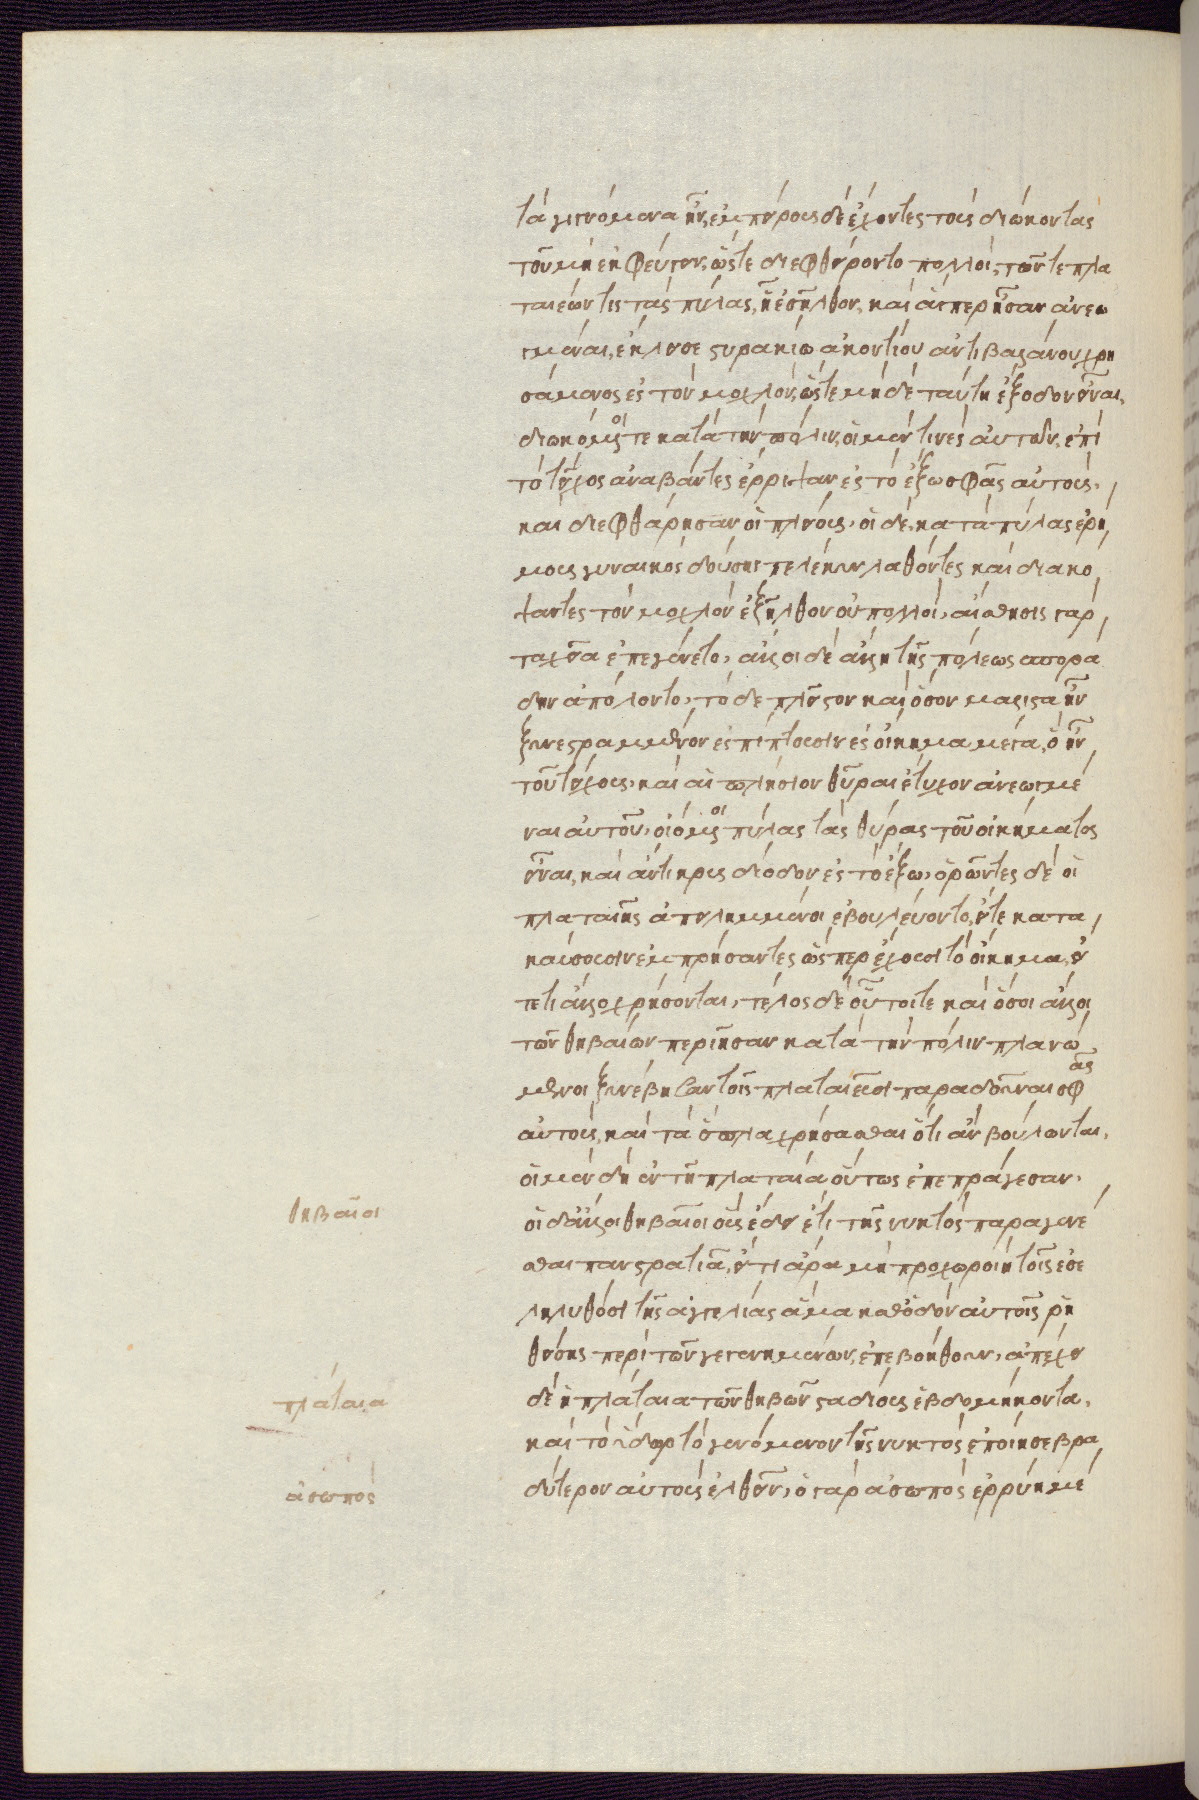 τὰ γιγνόμενα ἦν, ἐμπείρους δὲ ἔχοντες τοὺς διώκοντας
τοῦ μὴ ἐκφεύγειν, ὥστε διεφθείροντο πολλοί, τῶν τε πλα
ταιέων τις τὰς πύλας, ᾗ ἐσῆλθον, καὶ αἵπερ ἦσαν ἀνεῳ
γμέναι, ἔκλεισε στυρακίῳ ἀκοντίου ἀντὶ βαλάνου χρη
σάμενος ἐς τὸν μοχλόν, ὥστε μηδὲ ταύτῃ ἔξοδον εἶναι,
διωκόμενοί τε κατὰ τὴν πόλιν, οἱ μέν τινες αὐτῶν, ἐπὶ
τὸ τεῖχος ἀναβάντες ἔρριψαν ἐς τὸ ἔξω σφᾶς αὐτούς,
καὶ διεφθάρησαν οἱ πλείους, οἱ δὲ, κατὰ πύλας ἐρή
μους γυναικὸς δούσης πέλεκυν λαθόντες καὶ διακό
ψαντες τὸν μοχλὸν ἐξῆλθον οὐ πολλοί, αἴσθησις γὰρ
ταχεῖα ἐπεγένετο, ἄλλοι δὲ ἄλλῃ τῆς πόλεως σπορά
δην ἀπώλοντο, τὸ δὲ πλεῖστον καὶ ὅσον μάλιστα ἦν
ξυνεστραμμένον ἐσπίπτουσιν ἐς οἴκημα μέγα, ὃ ἦν
τοῦ τείχους, καὶ αἱ πλησίον θύραι ἔτυχον ἀνεῳγμέ
ναι αὐτοῦ, οἰόμενοι πύλας τὰς θύρας τοῦ οἰκήματος
εἶναι, καὶ ἄντικρυς δίοδον ἐς τὸ ἔξω, ὁρῶντες δὲ οἱ
πλαταιῆς ἀπειλημμένοι ἐβουλεύοντο, εἴτε κατα
καύσουσιν ἐμπρήσαντες ὥσπερ ἔχουσι τὸ οἴκημα, εἴ
τε τι ἄλλο χρήσονται, τέλος δὲ οὗτοί τε καὶ ὅσοι ἄλλοι
τῶν θηβαίων περιῆσαν κατὰ τὴν πόλιν πλανώ
μενοι ξυνέβησαν τοῖς πλαταιεῦσι παραδοῦναι σφᾶς
αὐτούς, καὶ τὰ ὅπλα χρήσασθαι ὅτι ἂν βούλωνται,
οἱ μὲν δὴ ἐν τῇ πλαταίᾳ οὕτως ἐπεπράγεσαν,
οἱ δ' ἄλλοι θηβαῖοι οὓς ἔδει ἔτι τῆς νυκτὸς παραγενέ
σθαι πανστρατιᾷ, εἴ τι ἄρα μὴ προχωροίη τοῖς ἐσε
ληλυθόσι τῆς ἀγγελίας ἅμα καθ' ὁδὸν αὐτοῖς ῥη
θείσης περὶ τῶν γεγενημένων, ἐπεβοήθουν, ἀπέχει
δὲ ἡ πλάταια τῶν θηβῶν σταδίους ἑβδομήκοντα,
καὶ τὸ ὕδωρ τὸ γενόμενον τῆς νυκτὸς ἐποίησε βρα
δύτερον αὐτοὺς ἐλθεῖν, ὁ γὰρ ἀσωπὸς ἐρρύη μέ
θηβαῖοι
πλάταια
ἀσωπός